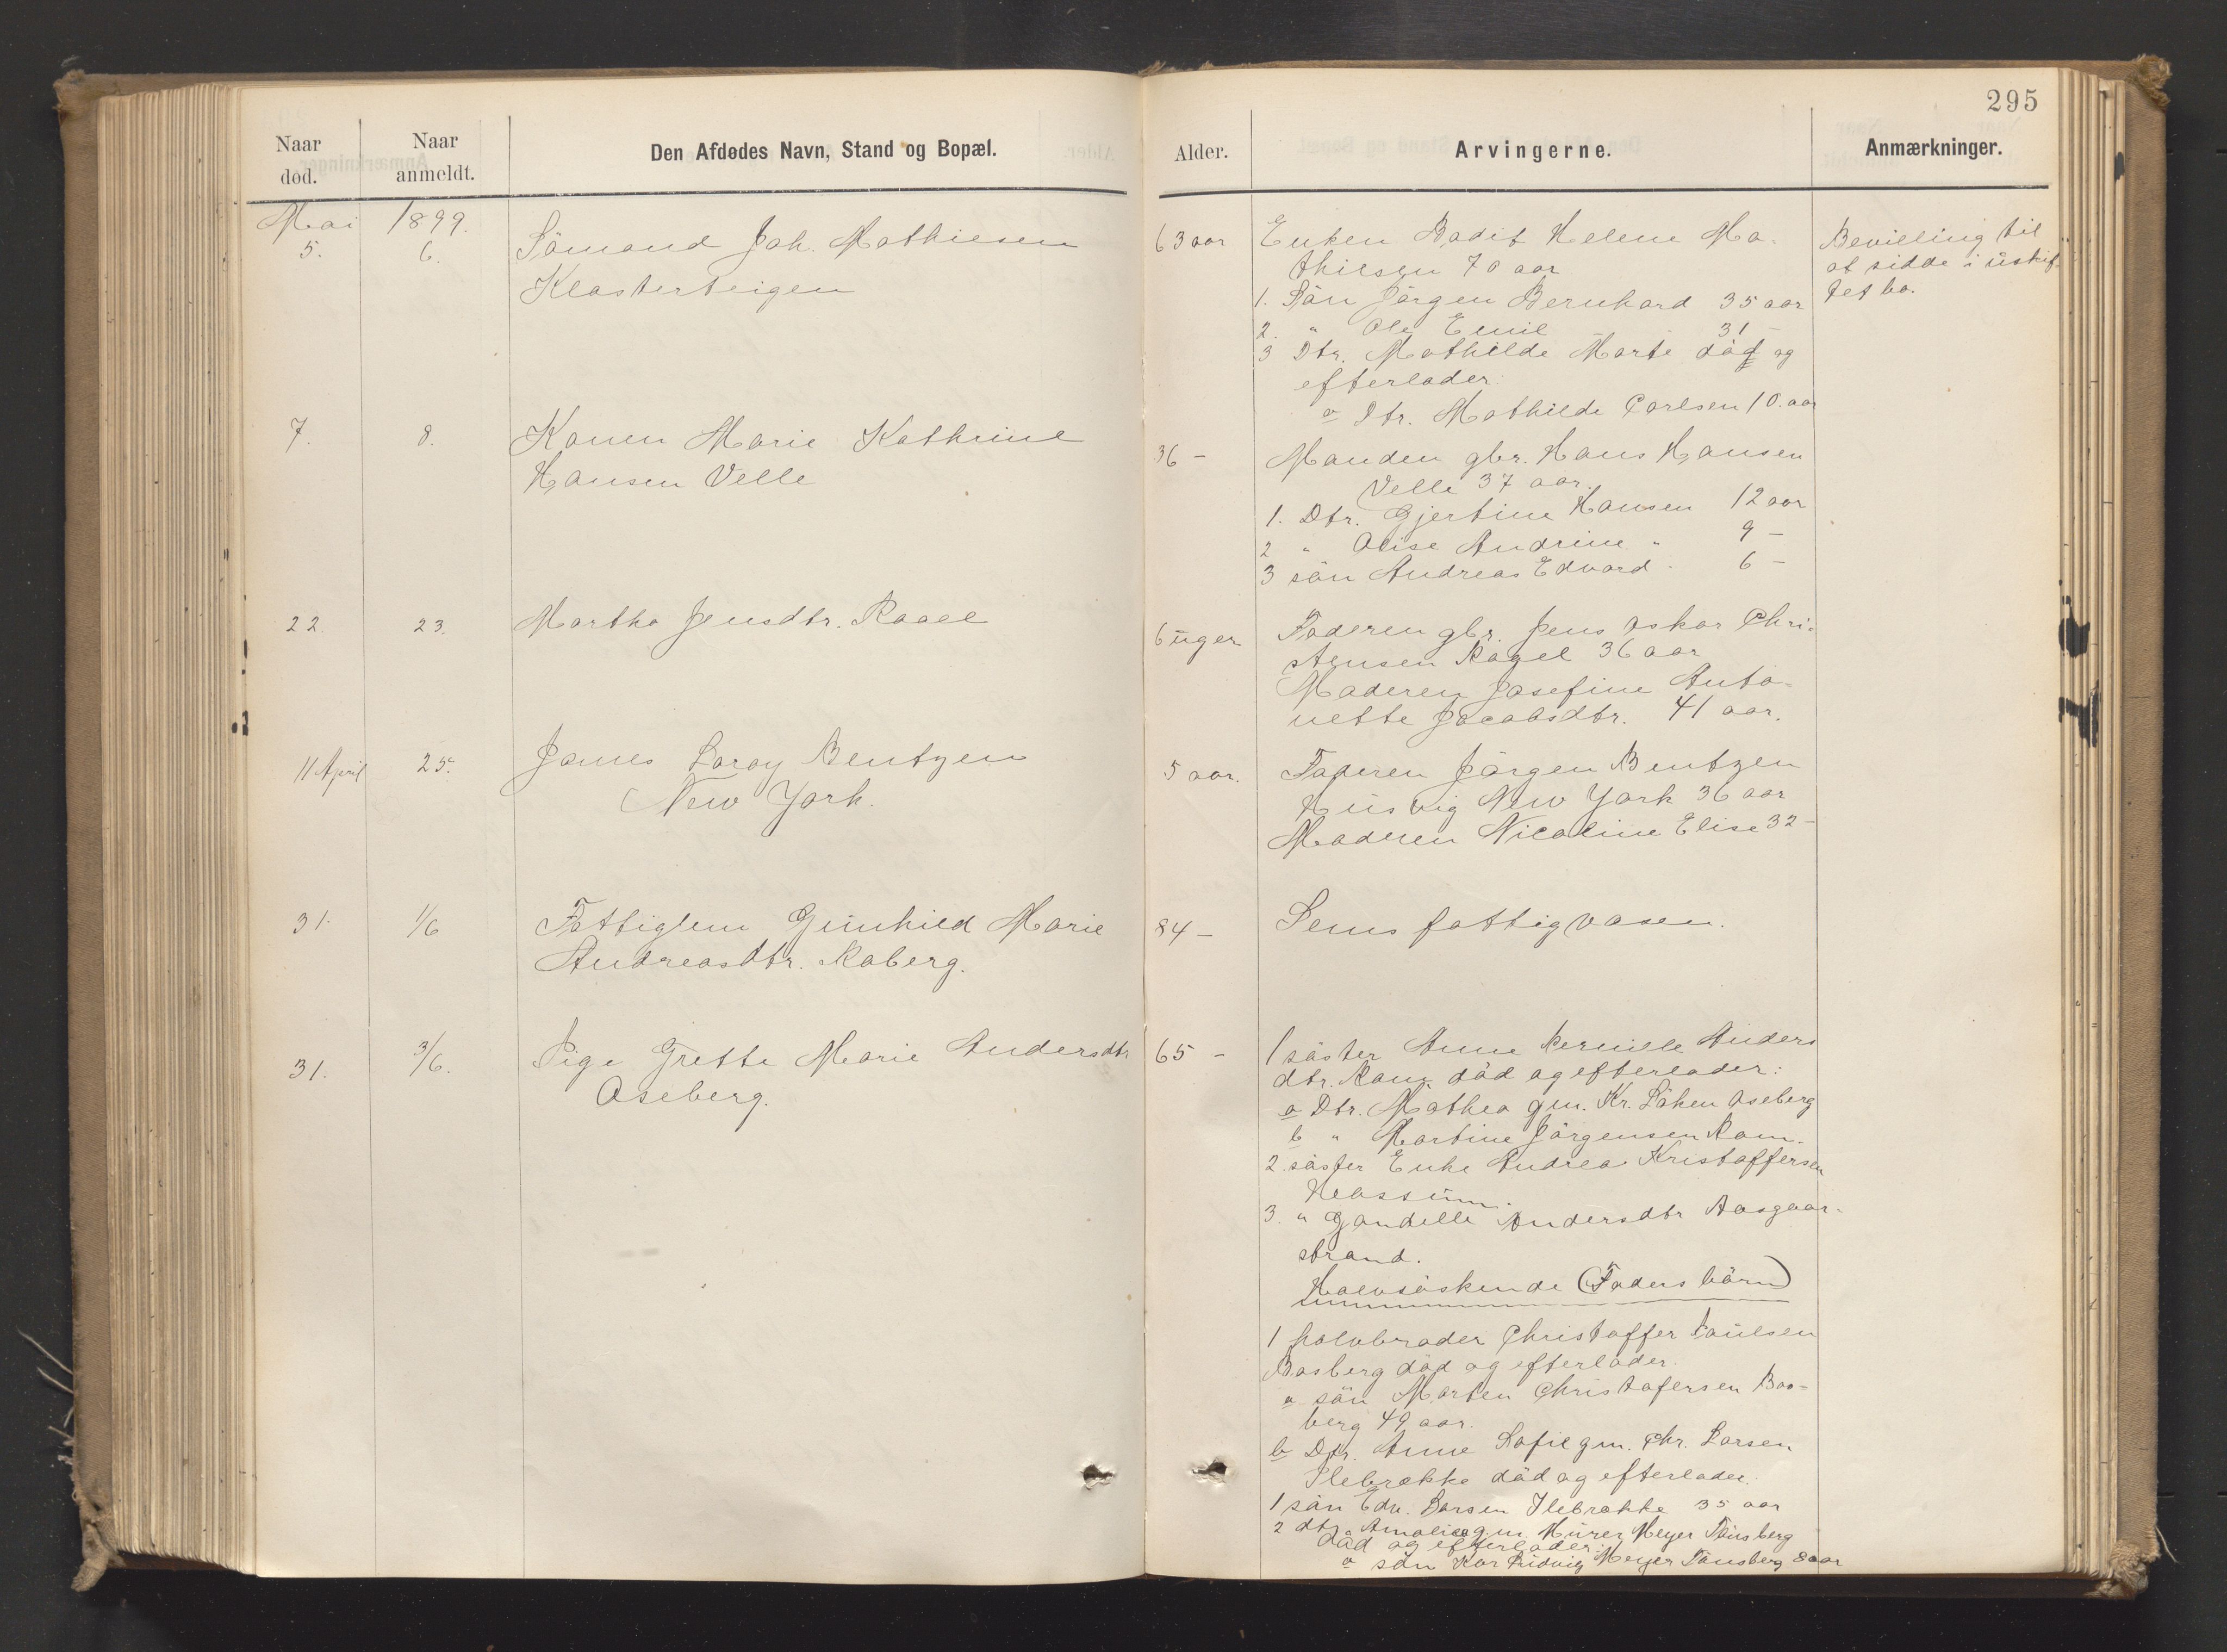 295
Naar død.
Naar anmeldt.
Den Afdødes Navn, Stand og Bopæl.
Alder.
Arvingerne.
Anmærkninger.
Mai 1899.
5.
6.
Sömand Joh. Mathiesen
Klosterteigen
63 aar
Enken Bodit Helene Ma-
thiesen 70 aar
1. Sön Jörgen Bernhard 35 aar
2. " Ole Emil 31 -
3 Dtr. Mathilde Marte död og
efterlader:
a Dtr. Mathilde Carlsen 10. aar
Bevilling til
at sidde i uskif-
tet bo.
7.
8.
Konen Marie Kathrine
Hansen Velle
36 -
Manden gbr. Hans Hansen
Velle 37 aar.
1. Dtr. Gjertine Hansen 12 aar
2 " Olise Andrine " 9 -
3 sön Andreas Edvard " 6 -
22.
23.
Martha Jensdtr. Raael
6 uger
Faderen gbr. Jens Oskar Chri-
stensen Rael 36 aar
Moderen Josefine Anto-
nette Jacobsdtr. 41 aar.
11 April
25.
James Leroy Bentzen
New York.
5 aar.
Faderen Jörgen Bentzen
Husvig New York 36 aar
Moderen Nicoline Elise 32 -
31.
1/6
Fattiglem Gunhild Marie
Andreasdtr. Raberg.
84 -
Sems fattigvæsen.
31.
3/6.
Pige Grette Marie Andersdtr
Oseberg.
65 -
1 söster Anne Pernille Anders
dtr. Ram död og efterlader:
a Dtr. Mathea gm. Kr. Löken Oseberg
b " Martine Jörgensen Ram.
2. söster Enke Andrea Kristoffersen
Klassum.
3. " Gondelle Andersdtr Aasgaar-
strand.
Halvsöskende (Faders börn)
1 halvbroder Christoffer Paulsen
Basberg död og efterlader.
a sön Morten Christofersen Bas-
berg 49 aar.
b Dtr. Anne Sofie gm. Chr. Larsen
Ilebrække död og efterlader.
1 sön Edv. Larsen Ilebrække 35 aar
2 dtr. Amalie gm. Murer Meyer Tönsberg
död og efterlader:
a sön Kar Ludvig Meyer Tönsberg 8 aar